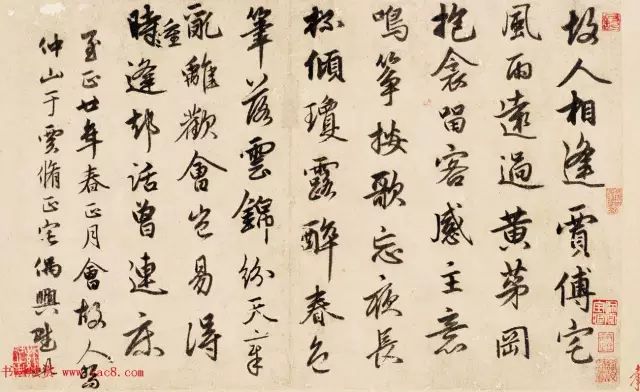 故人相逢賈傅宅
風雨遠過黃茅岡
抱衾留客感主意
鳴箏按歌忘夜長
杯傾瓊露醉春色
筆落雲錦紛天章
亂離歡會豈易得
時重逢却話曾連床
至正廿年春正月會故人
仲山于雲脩正宅偶興
ac8.com